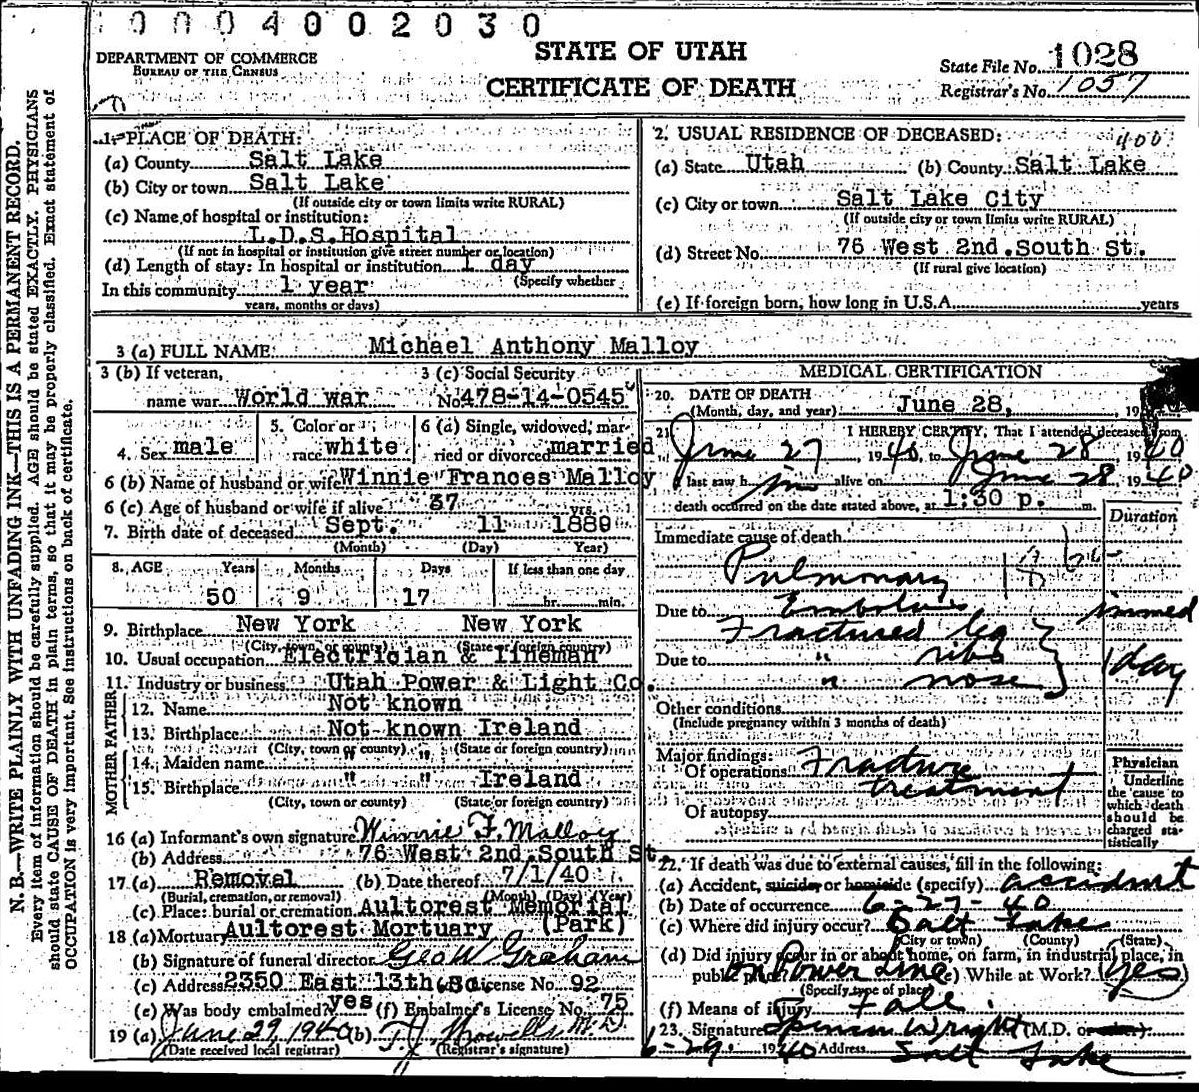 0 0 0 4 0 0 2 0 3 0
DEPARTMENT OF COMMERCE
BUREAU OF THE CENSUS
STATE OF UTAH
CERTIFICATE OF DEATH
State File No. 1028
Registrar's No. 1057
N. B.—WRITE PLAINLY WITH UNFADING INK—THIS IS A PERMANENT RECORD.
Every item of information should be carefully supplied. AGE should be stated EXACTLY. PHYSICIANS
should state CAUSE OF DEATH in plain terms, so that it may be properly classified. Exact statement of
OCCUPATION is very important. See instructions on back of certificate.
1. PLACE OF DEATH:
(a) County Salt Lake
(b) City or town Salt Lake
(If outside city or town limits write RURAL)
(c) Name of hospital or institution:
L.D.S. Hospital
(If not in hospital or institution give street number or location)
(d) Length of stay: In hospital or institution 1 day
(Specify whether
In this community 1 year
years, months or days)
2. USUAL RESIDENCE OF DECEASED: 400
(a) State Utah (b) County Salt Lake
(c) City or town Salt Lake City
(If outside city or town limits write RURAL)
(d) Street No. 76 West 2nd. South St.
(If rural give location)
(e) If foreign born, how long in U.S.A. years
3 (a) FULL NAME Michael Anthony Malloy
3 (b) If veteran,
name war World war
3 (c) Social Security
No. 478-14-0545
4. Sex male
5. Color or
race white
6 (a) Single, widowed, mar-
ried or divorced married
6 (b) Name of husband or wife Winnie Frances Malloy
6 (c) Age of husband or wife if alive 37 yrs.
7. Birth date of deceased Sept. 11 1889
(Month) (Day) Year)
8. AGE Years Months Days If less than one day
50 9 17 hr. min.
9. Birthplace New York New York
(City, town or county) (State or foreign country)
10. Usual occupation Electrician & lineman
11. Industry or business Utah Power & Light Co.
FATHER
12. Name Not known
13. Birthplace Not known Ireland
(City, town or county) (State or foreign country)
MOTHER
14. Maiden name " "
15. Birthplace " " Ireland
(City, town or county) (State or foreign country)
16 (a) Informant's own signature Winnie F. Malloy
(b) Address 76 West 2nd. South St.
17 (a) Removal (b) Date thereof 7/1/40
(Burial, cremation, or removal) (Month) (Day) (Year)
(c) Place: burial or cremation Aultorest Memorial
(Park)
18 (a) Mortuary Aultorest Mortuary
(b) Signature of funeral director Geo W Graham
(c) Address 2350 East 13th So. License No. 92
(e) Was body embalmed? yes (f) Embalmer's License No. 75
19 (a) June 29, 1940 (b) T J Howells M.D.
(Date received local registrar) (Registrar's signature)
MEDICAL CERTIFICATION
20. DATE OF DEATH
(Month, day, and year) June 28, 19
21. I HEREBY CERTIFY, That I attended deceased from
June 27, 1940, to June 28 1940
I last saw h im alive on June 28 1940
death occurred on the date stated above, at 1:30 p. m.
Duration
Immediate cause of death
Pulmonary
Due to Embolus immed
Fractured leg
Due to " ribs
" nose
1 day
Other conditions
(Include pregnancy within 3 months of death)
Major findings:
Of operations Fracture
treatment
Of autopsy
Physician
Underline
the cause to
which death
should be
charged sta-
tistically
22. If death was due to external causes, fill in the following:
(a) Accident, suicide or homicide (specify) accident
(b) Date of occurrence 6-27-40
(c) Where did injury occur? Salt Lake
(City or town) (County) (State)
(d) Did injury occur in or about home, on farm, in industrial place, in
public place? on Power Line (e) While at Work? Yes
(Specify type of place)
(f) Means of injury Fall.
23. Signature Spencer Wright (M.D. or other)
6-29, 1940 Address Salt Lake